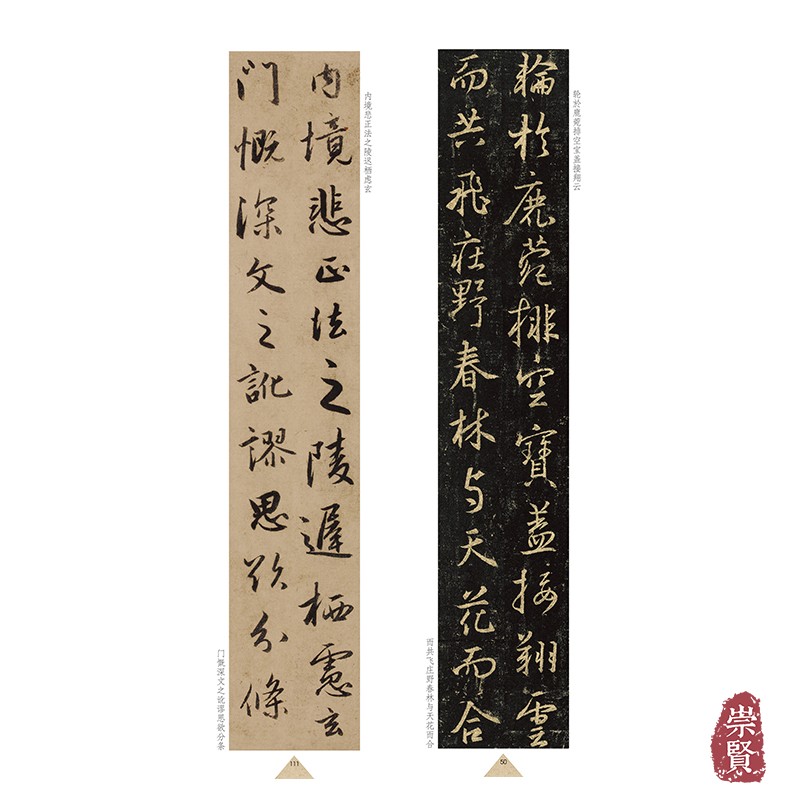 轮於鹿菀排空宝盖接翔云
輪於鹿菀排空寶盖接翔雲
而共飛庄野春林与天花而合
而共飞庄野春林与天花而合
50
内境悲正法之陵迟栖虑玄
内境悲正法之陵遲栖慮玄
门慨深文之訛謬思欲分條
门慨深文之讹谬思欲分条
111
崇賢